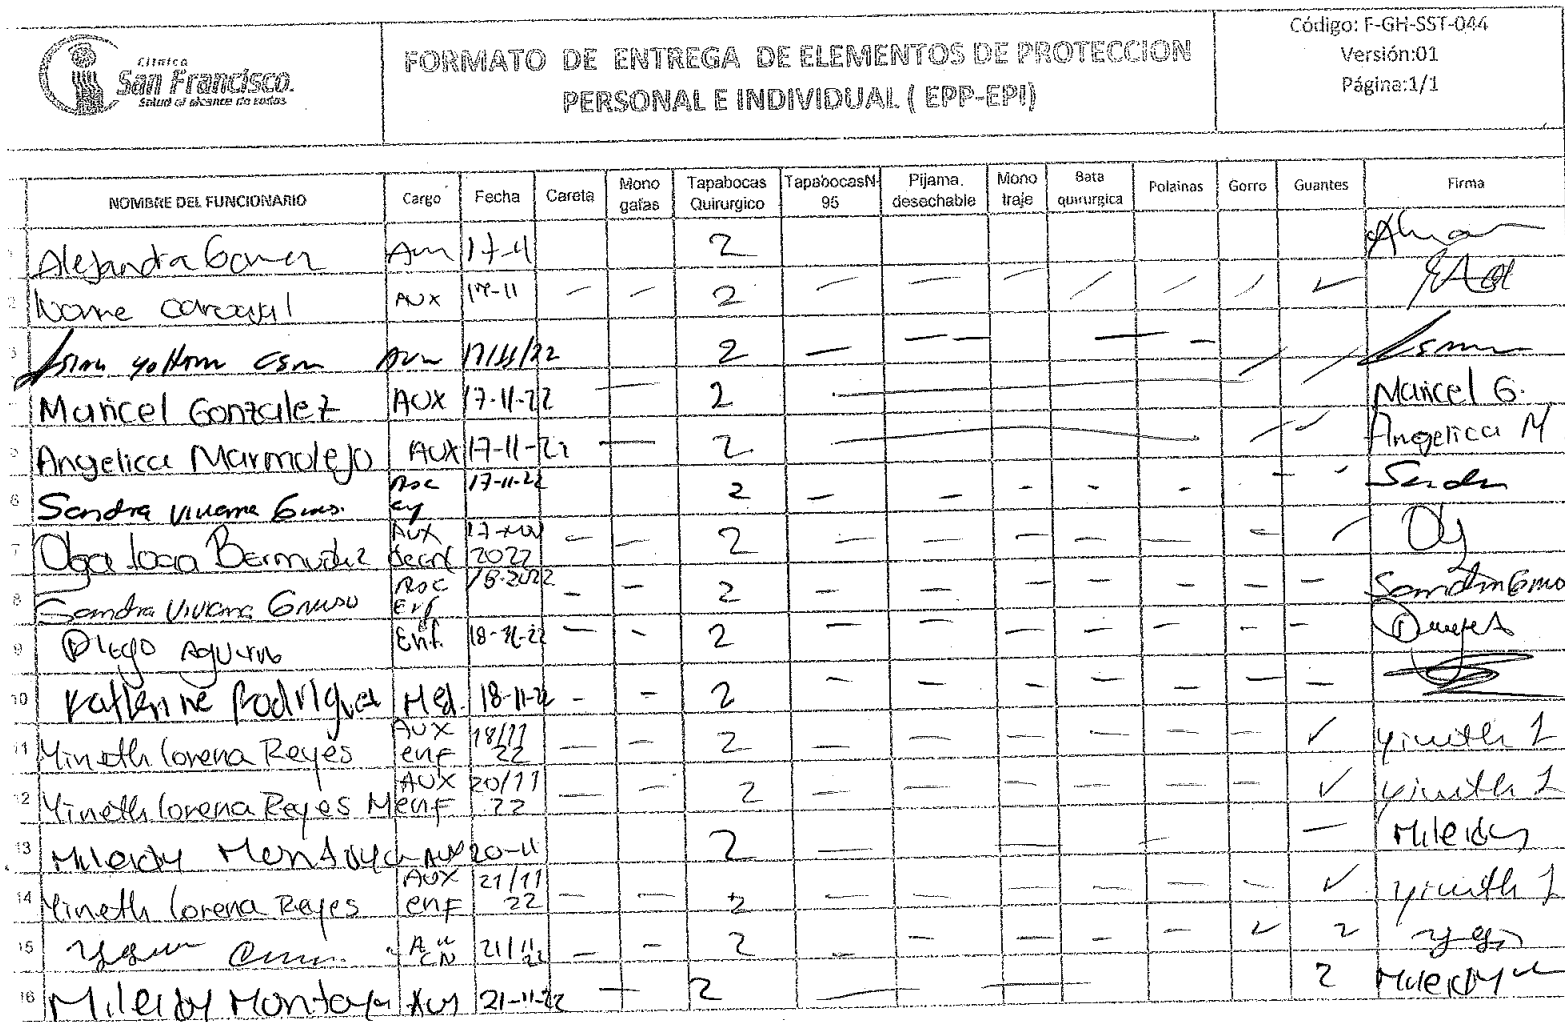 Clínica
San Francisco.
Salud al alcance de todos
FORMATO DE ENTREGA DE ELEMENTOS DE PROTECCION
PERSONAL E INDIVIDUAL ( EPP-EPI)
Código: F-GH-SST-044
Versión:01
Página:1/1
NOMBRE DEL FUNCIONARIO Cargo Fecha Careta Mono gafas Tapabocas Quirurgico TapabocasN-95 Pijama. desechable Mono traje Bata quirurgica Polainas Gorro Guantes Firma
Alejandra 17-11 2
2 AUX 17-11 — — 2 — — — / / / ✓
3 17/11/22 2 — — — — — / /
Maricel Gonzalez AUX 17-11-22 — 2 — Maricel G.
5 Angelica Marmolejo AUX 17-11-22 — 2 — / ✓ Angelica M
6 Sandra Viviana 17-11-22 2 — — - - - - -
7 Olga Bermudez AUX 17- 2022 — — 2 — — — — — — /
8 Sandra Viviana 18-2022 — — 2 — — — — — — —
9 Diego Enf. 18-11-22 — - 2 — — — — — — —
10 Katherine Rodriguez Med. 18-11-22 - - 2 — — — — — — —
11 Yineth Lorena Reyes AUX enf 18/11 22 — — 2 — — — — — — ✓ Yineth L
12 Yineth Lorena Reyes M AUX enf 20/11 22 — — 2 — — — — — — ✓ Yineth L
13 Mileidy Montoya AUX 20-11 2 — — - — Mileidy
14 Yineth Lorena Reyes AUX enf 21/11 22 — — 2 — — — — — — ✓ Yineth L
15 21/11 22 — - 2 — — — — ✓ 2
16 Mileidy Montoya AUX 21-11-22 — 2 — — 2 Mileidy